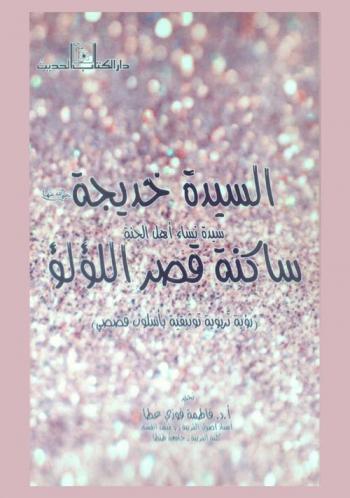 دار الكتاب الحديث
السيدة خديجة رضي الله عنها
سيدة نساء أهل الجنة
ساكنة قصر اللؤلؤ
(رؤية تربوية توثيقية بأسلوب قصصي)
أ.د. فاطمة فوزي عطا
كلية التربية - جامعة طنطا